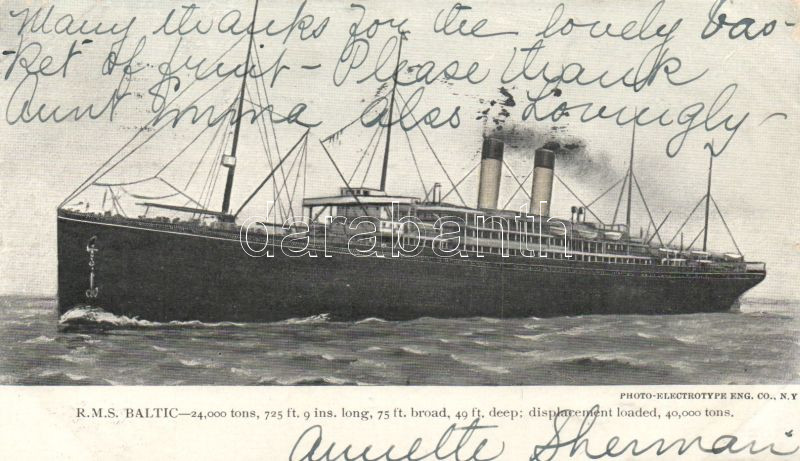 Many thanks for the lovely bas-
ket of fruit - Please thank
Aunt Emma also. Lovingly -
darabanth
PHOTO-ELECTROTYPE ENG. CO., N.Y
R.M.S. BALTIC—24,000 tons, 725 ft. 9 ins. long, 75 ft. broad, 49 ft. deep; displacement loaded, 40,000 tons.
Annette Sherman